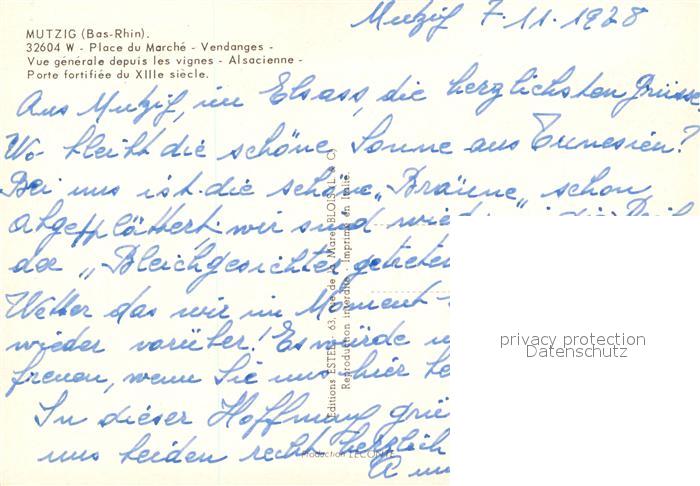 MUTZIG (Bas-Rhin).
32604 W - Place du Marché - Vendanges -
Vue générale depuis les vignes - Alsacienne -
Porte fortifiée du XIIIe siècle.
Mutzig 7.11.1928
Aus Mutzig, im Elsass, die herzlichsten Grüsse,
Wo bleibt die schöne Sonne aus Tunesien?
Bei uns ist die schöne „Bräune„ schon
abgeplättert, wir sind wieder in die Reih
der „Bleichgesichter getreten
Wetter das wir im Moment
wieder vorüber! Es würde u
freuen, wenn Sie uns hier be
In dieser Hoffnung grü
uns beiden recht herzlich
Editions ESTEL - 63, rue de la Maree BLOIS (L & C)
Reproduction interdite - Imprimé en Italie
Production LECONTE
privacy protection
Datenschutz